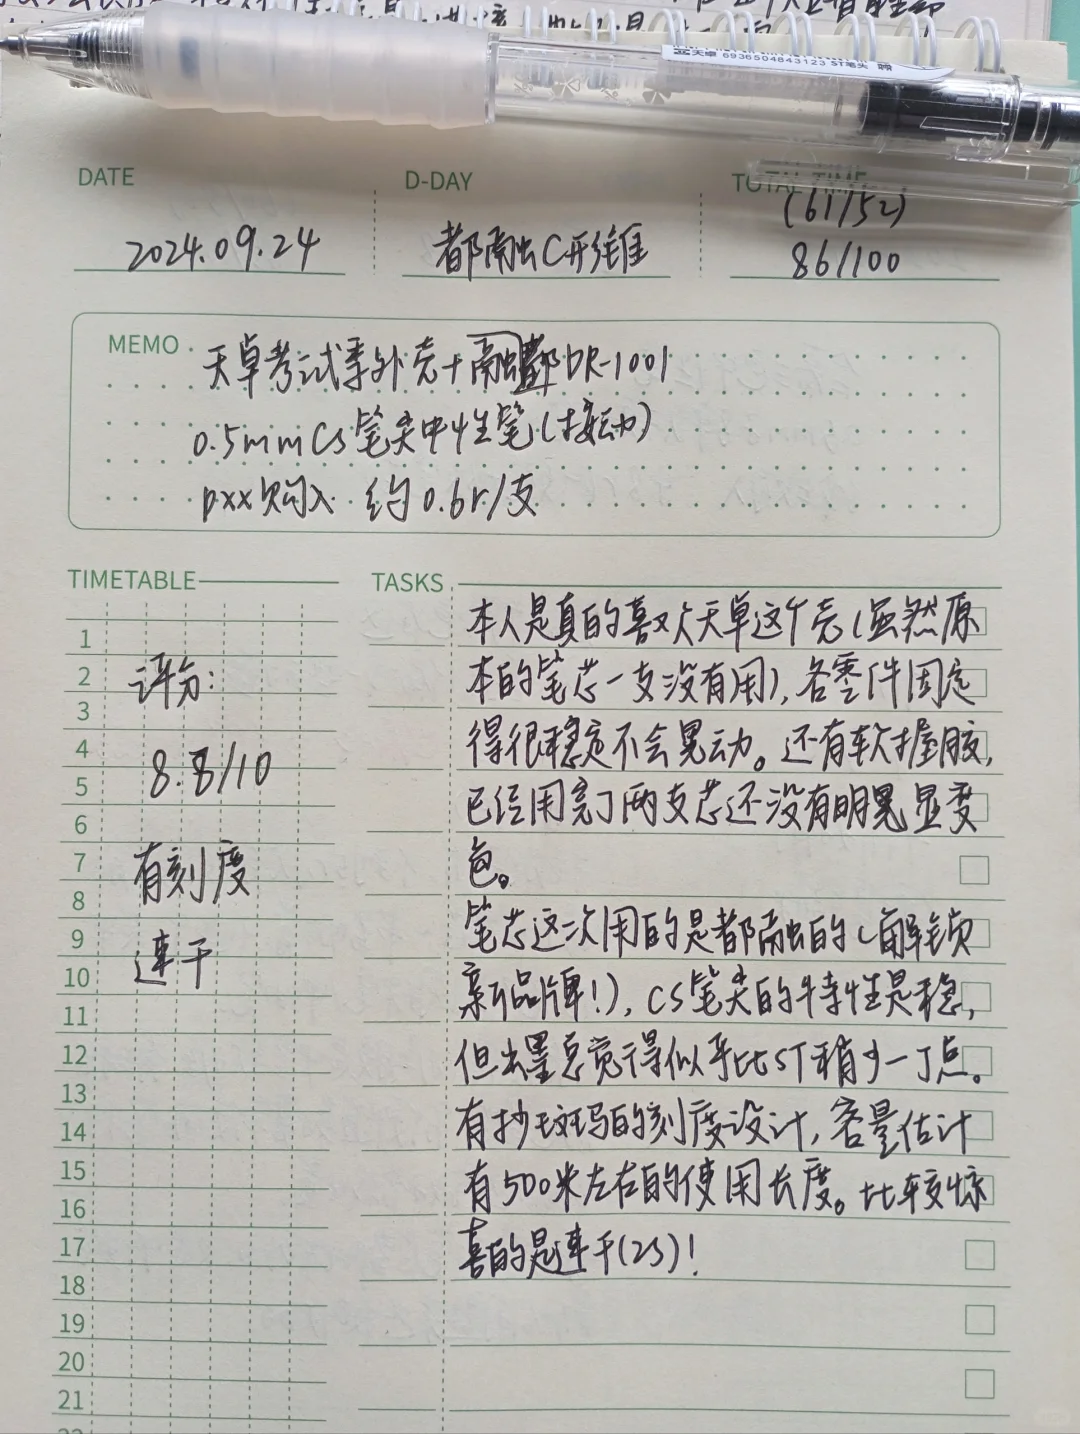 天卓 6936504843123 ST笔头
DATE
D-DAY
TOTAL TIME
(61/52)
2024.09.24
都融C形锥
86/100
MEMO
天卓考试季外壳+融都DR-1001
0.5mm CS笔尖中性笔(按动)
pxx购入 约0.6r/支
TIMETABLE
TASKS
1
2
3
4
5
6
7
8
9
10
11
12
13
14
15
16
17
18
19
20
21
评分:
8.8/10
有刻度
速干
本人是真的喜欢天卓这个壳(虽然原
本的笔芯一支没有用),各零件固定
得很稳定不会晃动。还有软握胶,
已经用完了两支芯还没有明晃显变
色。
笔芯这次用的是都融的(解锁
新品牌!),CS笔尖的特性是稳,
但出墨总觉得似乎比ST稍少一丁点。
有抄斑马的刻度设计,容量估计
有500米左右的使用长度。比较惊
喜的是速干(2s)!